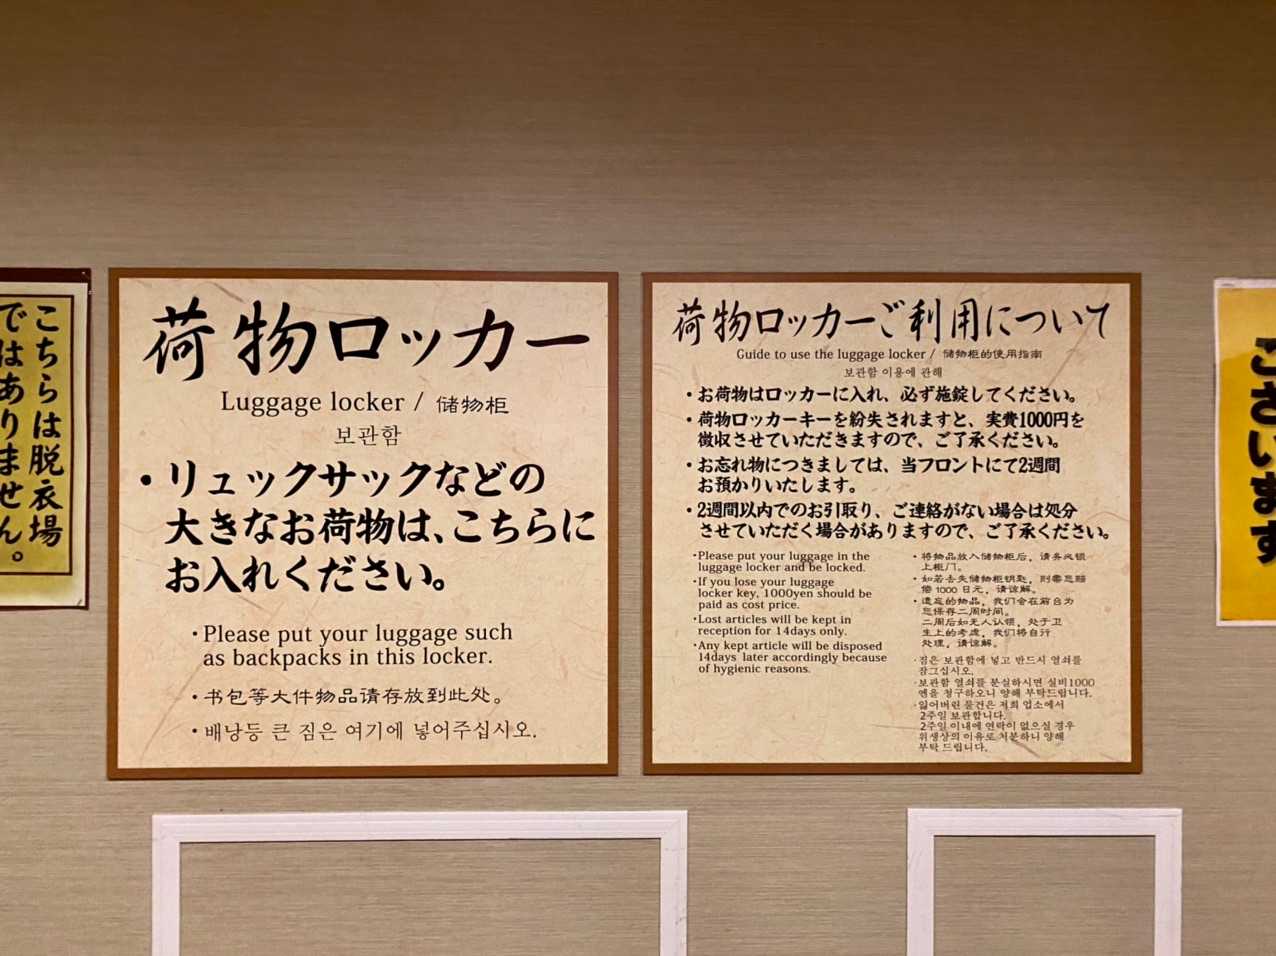 こちらは脱衣場
ではありません。
荷物ロッカー
Luggage locker / 储物柜
보관함
・リュックサックなどの
大きなお荷物は、こちらに
お入れください。
・Please put your luggage such
as backpacks in this locker.
・书包等大件物品请存放到此处。
・배낭등 큰 짐은 여기에 넣어주십시오.
荷物ロッカーご利用について
Guide to use the luggage locker / 储物柜的使用指南
보관함 이용에 관해
・お荷物はロッカーに入れ、必ず施錠してください。
・荷物ロッカーキーを紛失されますと、実費1000円を
徴収させていただきますので、ご了承ください。
・お忘れ物につきましては、当フロントにて2週間
お預かりいたします。
・2週間以内でのお引取り、ご連絡がない場合は処分
させていただく場合がありますので、ご了承ください。
・Please put your luggage in the
luggage locker and be locked.
・If you lose your luggage
locker key, 1000yen should be
paid as cost price.
・Lost articles will be kept in
reception for 14days only.
・Any kept article will be disposed
14days later accordingly because
of hygienic reasons.
・将物品放入储物柜后，请务必锁
上柜门。
・如若丢失储物柜钥匙，则需您赔
偿1000日元，请谅解。
・遗忘的物品，我们会在前台为
您保存二周时间。
二周后如无人认领，处于卫
生上的考虑，我们将自行
处理，请谅解。
・짐은 보관함에 넣고 반드시 열쇠를
잠그십시오.
・보관함 열쇠를 분실하시면 실비1000
엔을 청구하오니 양해 부탁드립니다.
・잃어버린 물건은 저희 업소에서
2주일 보관합니다.
2주일 이내에 연락이 없으실 경우
위생상의 이유로 처분하니 양해
부탁 드립니다.
ございます